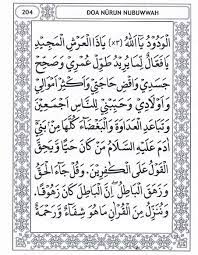 204
DOA NÛRUN NUBUWWAH
الْوَدُودُ يَآ اَللهُ (×٣) يَاذَا الْعَرْشِ الْمَجِيْدِ
يَا فَعَّالٌ لِمَا يُرِيْدُ طَوِّلْ عُمْرِيْ وَصَحِّحْ
جَسَدِيْ وَاقْضِ حَاجَتِيْ وَاَكْثِرْ اَمْوَالِيْ
وَاَوْلَادِيْ وَحَبِّبْنِيْ لِلنَّاسِ اَجْمَعِيْنَ
وَتَبَاعَدِ الْعَدَاوَةَ وَالْبَغْضَآءَ كُلَّهَا مِنْ بَنِيْ
اٰدَمَ عَلَيْهِ السَّلَامُ مَنْ كَانَ حَيًّا وَيَحِقَّ
الْقَوْلُ عَلَى الْكٰفِرِيْنَ. وَقُلْ جَآءَ الْحَقُّ
وَزَهَقَ الْبَاطِلُ اِنَّ الْبَاطِلَ كَانَ زَهُوْقًا.
وَنُنَزِّلُ مِنَ الْقُرْاٰنِ مَا هُوَ شِفَآءٌ وَّرَحْمَةٌ